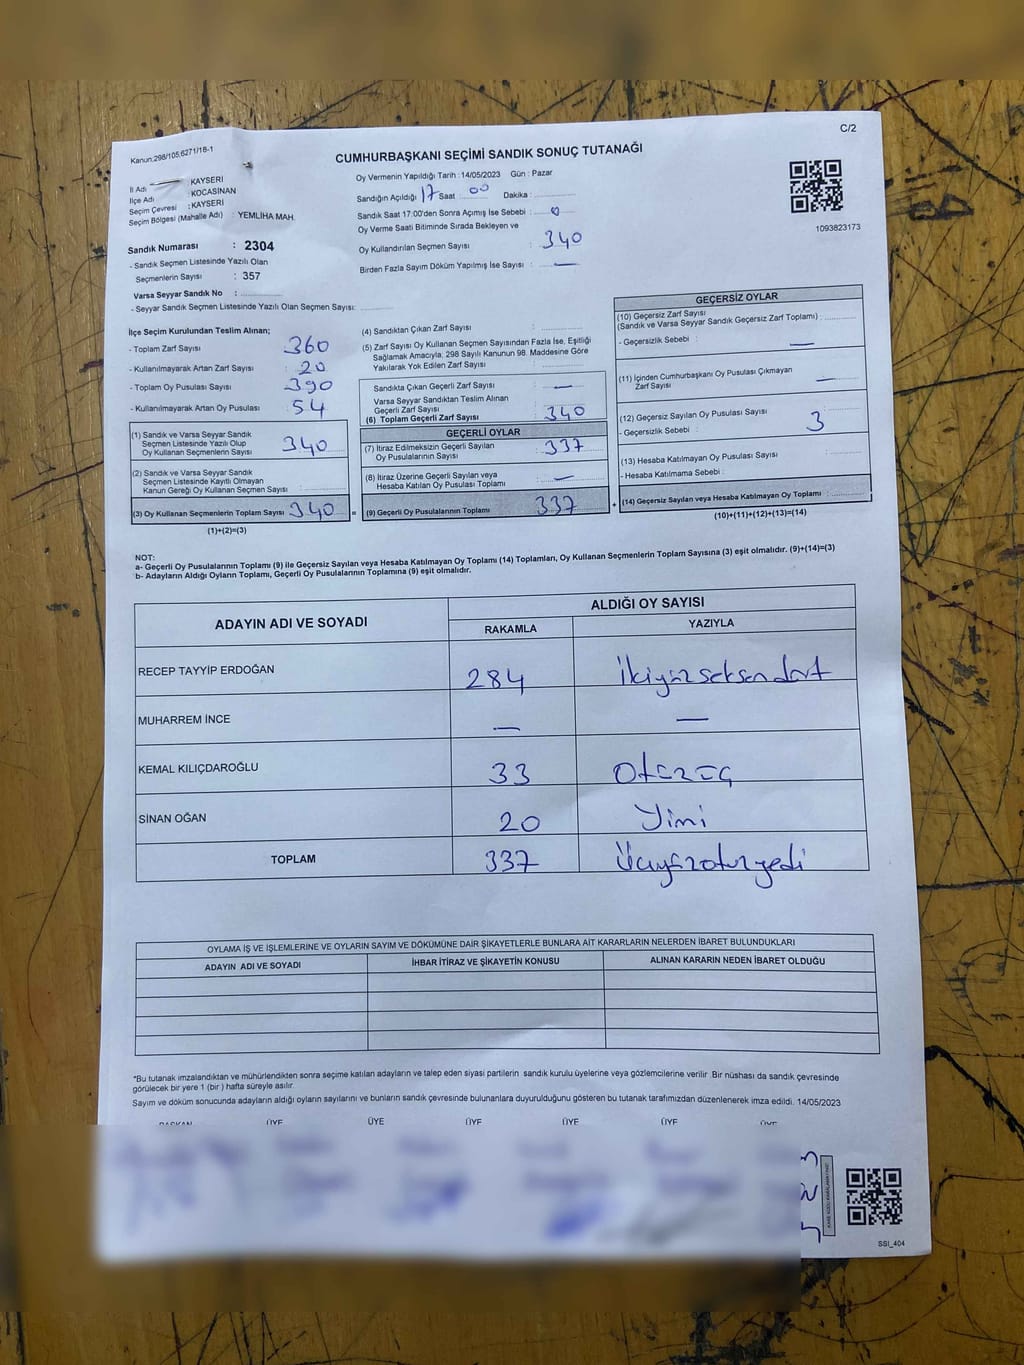 Kanun:298/105,6271/18-1
C/2
CUMHURBAŞKANI SEÇİMİ SANDIK SONUÇ TUTANAĞI
İl Adı : KAYSERİ
İlçe Adı : KOCASİNAN
Seçim Çevresi : KAYSERİ
Seçim Bölgesi (Mahalle Adı) : YEMLİHA MAH.
Oy Vermenin Yapıldığı Tarih : 14/05/2023 Gün : Pazar
Sandığın Açıldığı 17 Saat 00 Dakika :
Sandık Saat 17.00'den Sonra Açımış İse Sebebi : 0
Oy Verme Saati Bitiminde Sırada Bekleyen ve
Oy Kullandırılan Seçmen Sayısı : 340
Birden Fazla Sayım Döküm Yapılmış İse Sayısı : —
1093823173
Sandık Numarası : 2304
- Sandık Seçmen Listesinde Yazılı Olan
Seçmenlerin Sayısı : 357
Varsa Seyyar Sandık No :
- Seyyar Sandık Seçmen Listesinde Yazılı Olan Seçmen Sayısı:
İlçe Seçim Kurulundan Teslim Alınan;
- Toplam Zarf Sayısı : 360
- Kullanılmayarak Artan Zarf Sayısı : 20
- Toplam Oy Pusulası Sayısı : 390
- Kullanılmayarak Artan Oy Pusulası : 54
(1) Sandık ve Varsa Seyyar Sandık
Seçmen Listesinde Yazılı Olup
Oy Kullanan Seçmenlerin Sayısı : 340
(2) Sandık ve Varsa Seyyar Sandık
Seçmen Listesinde Kayıtlı Olmayan
Kanun Gereği Oy Kullanan Seçmen Sayısı :
(3) Oy Kullanan Seçmenlerin Toplam Sayısı 340 =
(1)+(2)=(3)
(4) Sandıktan Çıkan Zarf Sayısı :
(5) Zarf Sayısı Oy Kullanan Seçmen Sayısından Fazla İse, Eşitliği
Sağlamak Amacıyla, 298 Sayılı Kanunun 98. Maddesine Göre
Yakılarak Yok Edilen Zarf Sayısı :
Sandıkta Çıkan Geçerli Zarf Sayısı : —
Varsa Seyyar Sandıktan Teslim Alınan
Geçerli Zarf Sayısı :
(6) Toplam Geçerli Zarf Sayısı : 340
GEÇERLİ OYLAR
(7) İtiraz Edilmeksizin Geçerli Sayılan
Oy Pusulalarının Sayısı : 337
(8) İtiraz Üzerine Geçerli Sayılan veya
Hesaba Katılan Oy Pusulası Toplamı : —
(9) Geçerli Oy Pusulalarının Toplamı : 337 +
GEÇERSİZ OYLAR
(10) Geçersiz Zarf Sayısı
(Sandık ve Varsa Seyyar Sandık Geçersiz Zarf Toplamı) :
- Geçersizlik Sebebi : —
(11) İçinden Cumhurbaşkanı Oy Pusulası Çıkmayan
Zarf Sayısı : —
(12) Geçersiz Sayılan Oy Pusulası Sayısı : 3
- Geçersizlik Sebebi :
(13) Hesaba Katılmayan Oy Pusulası Sayısı :
- Hesaba Katılmama Sebebi :
(14) Geçersiz Sayılan veya Hesaba Katılmayan Oy Toplamı :
(10)+(11)+(12)+(13)=(14)
NOT:
a- Geçerli Oy Pusulalarının Toplamı (9) ile Geçersiz Sayılan veya Hesaba Katılmayan Oy Toplamı (14) Toplamları, Oy Kullanan Seçmenlerin Toplam Sayısına (3) eşit olmalıdır. (9)+(14)=(3)
b- Adayların Aldığı Oyların Toplamı, Geçerli Oy Pusulalarının Toplamına (9) eşit olmalıdır.
ADAYIN ADI VE SOYADI
ALDIĞI OY SAYISI
RAKAMLA YAZIYLA
RECEP TAYYİP ERDOĞAN 284 İkiyüzseksendört
MUHARREM İNCE — —
KEMAL KILIÇDAROĞLU 33 Otuzüç
SİNAN OĞAN 20 Yimi
TOPLAM 337 Üçyüzotuzyedi
OYLAMA İŞ VE İŞLEMLERİNE VE OYLARIN SAYIM VE DÖKÜMÜNE DAİR ŞİKAYETLERLE BUNLARA AİT KARARLARIN NELERDEN İBARET BULUNDUKLARI
ADAYIN ADI VE SOYADI İHBAR İTİRAZ VE ŞİKAYETİN KONUSU ALINAN KARARIN NEDEN İBARET OLDUĞU
*Bu tutanak imzalandıktan ve mühürlendikten sonra seçime katılan adayların ve talep eden siyasi partilerin sandık kurulu üyelerine veya gözlemcilerine verilir. Bir nüshası da sandık çevresinde
görülecek bir yere 1 (bir) hafta süreyle asılır.
Sayım ve döküm sonucunda adayların aldığı oyların sayılarını ve bunların sandık çevresinde bulunanlara duyurulduğunu gösteren bu tutanak tarafımızdan düzenlenerek imza edildi. 14/05/2023
BAŞKAN ÜYE ÜYE ÜYE ÜYE ÜYE ÜYE
SSI_404